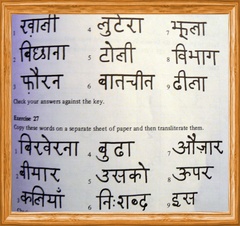 1 खाली 4 लुटेरा 7 झूला
2 बिछाना 5 टोली 8 विभाग
3 फ़ौरन 6 बातचीत 9 ढीला
Check your answers against the key.
Exercise 27
Copy these words on a separate sheet of paper and then transliterate them.
बिखेरना 4 बुढा 7 औज़ार
बीमार 5 उसको 8 ऊपर
कलियाँ 6 निःशब्द 9 इस